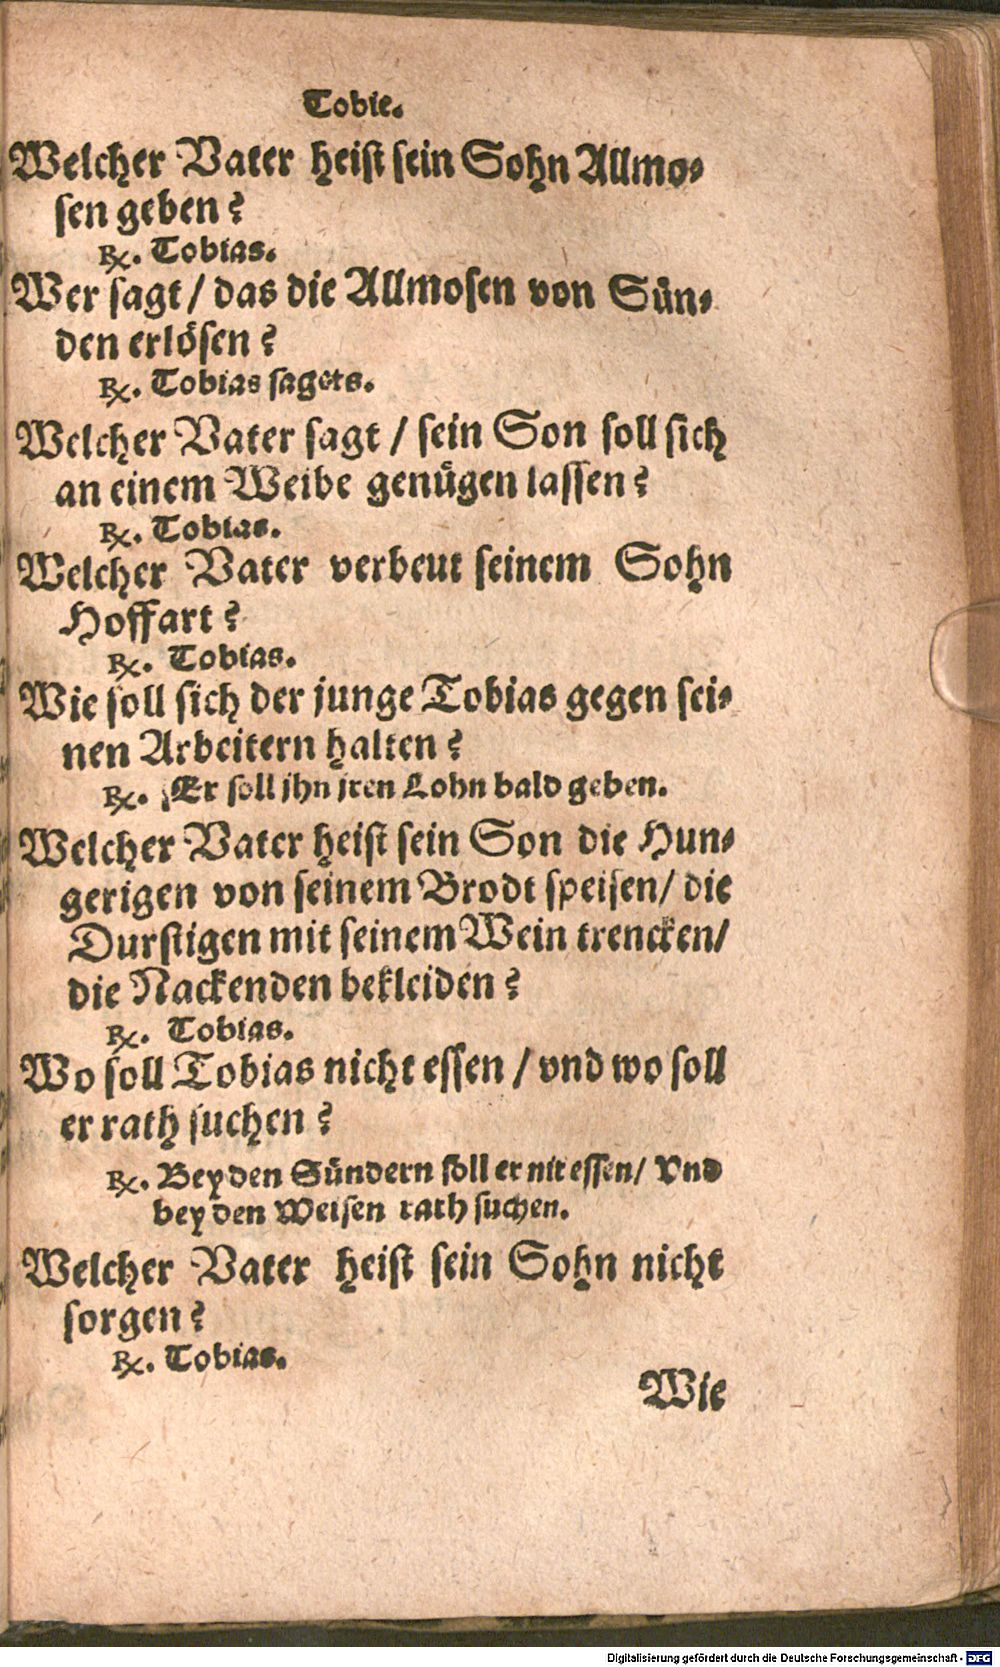 Tobie.
Welcher Vater heist sein Sohn Allmo⸗
sen geben?
℞. Tobias.
Wer sagt / das die Allmosen von Sün⸗
den erlösen?
℞. Tobias sagets.
Welcher Vater sagt / sein Son soll sich
an einem Weibe genügen lassen?
℞. Tobias.
Welcher Vater verbeut seinem Sohn
Hoffart?
℞. Tobias.
Wie soll sich der junge Tobias gegen sei⸗
nen Arbeitern halten?
℞. Er soll jhn jren Lohn bald geben.
Welcher Vater heist sein Son die Hun⸗
gerigen von seinem Brodt speisen/ die
Durstigen mit seinem Wein trencken/
die Nackenden bekleiden?
℞. Tobias.
Wo soll Tobias nicht essen / vnd wo soll
er rath suchen?
℞. Bey den Sündern soll er nit essen/ Vnd
bey den Weisen rath suchen.
Welcher Vater heist sein Sohn nicht
sorgen?
℞. Tobias.
Wie
Digitalisierung gefördert durch die Deutsche Forschungsgemeinschaft - DFG